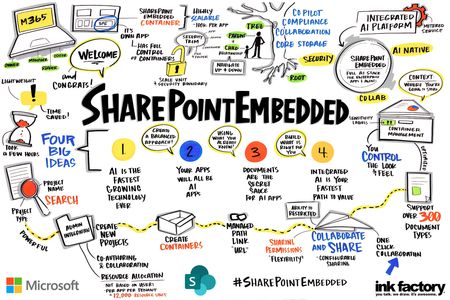 M365
SPE
SHAREPOINT
EMBEDDED
CONTAINER
ITS OWN
APP
→ HAS FULL
CONTROL OF
CONTAINERS
HIGHLY
SCALABLE
SECURITY
TRIM
SCALE UNIT
+ SECURITY BOUNDARY
TREE
PARENT
CHILD
RELATIONSHIP
NAVIGATE
UP + DOWN
ROOT
SECURITY
COPILOT
COMPLIANCE
COLLABORATION
CORE STORAGE
INTEGRATED
AI PLATFORM
METERED
SERVICE
SHAREPOINT
EMBEDDED
AI NATIVE
COLLAB
CONTEXT:
OWNER
MANAGER
WELCOME
AND
CONGRATS!
LIGHTWEIGHT!
TIME
SAVED!
TOOK
A FEW HOURS
SHAREPOINTEMBEDDED
SENSITIVITY
LABELS
CONTAINER
MANAGEMENT
YOU
CONTROL
THE LOOK
+ FEEL
FOUR
BIG
IDEAS
CREATE
A BALANCED
APPROACH!
USING
WHAT YOU
ALREADY
KNOW!
BUILD
WHAT IS
RIGHT FOR
YOU!
1
AI IS THE
FASTEST
GROWING
TECHNOLOGY
EVER
2
YOUR APPS
WILL ALL BE
AI
APPS
3
DOCUMENTS
ARE THE
SECRET
SAUCE FOR
AI APPS
4
INTEGRATED
AI IS YOUR
FASTEST
PATH TO VALUE
PROJECT
NAME
SEARCH
PROJECT
TYPE
POWERFUL
CREATE
NEW
PROJECTS
CO-AUTHORING
& COLLABORATION
RESOURCE ALLOCATION
NOT BASED ON USERS
PER APP PER TENANT
CREATE
CONTAINERS
MANAGED
PATH
LINK
"URL"
ABILITY IS
RESTRICTED
SHARING
PERMISSIONS
"FLEXIBILITY"
COLLABORATE
AND SHARE
CONFIGURABLE
SHARING
SUPPORT
OVER 300
DOCUMENT
TYPES
ONE
CLICK
COLLABORATION
Microsoft
S
#SHAREPOINTEMBEDDED
ink factory
you talk. we draw. it's awesome.